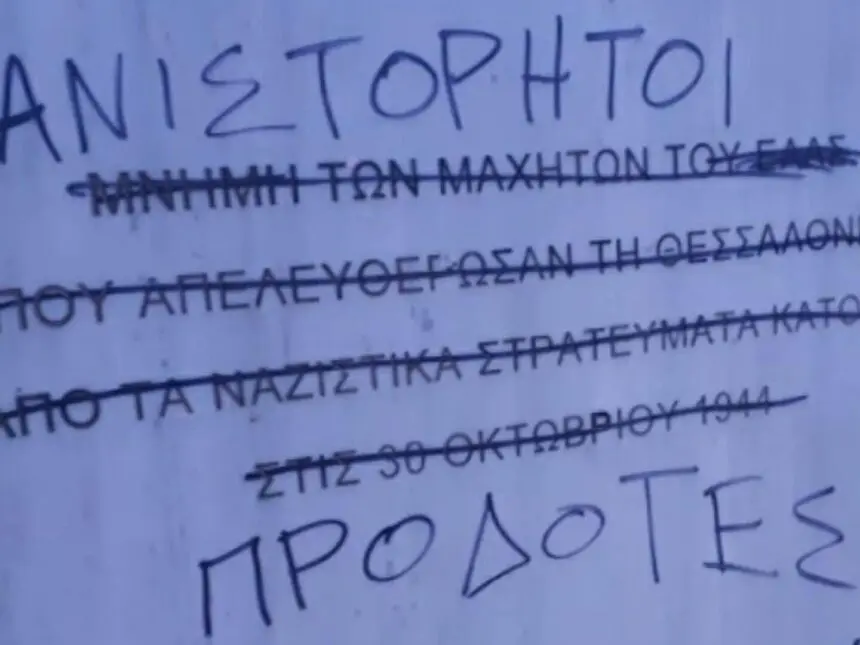 ΑΝΙΣΤΟΡΗΤΟΙ
ΜΝΗΜΗ ΤΩΝ ΜΑΧΗΤΩΝ ΤΟΥ ΕΛΑΣ
ΠΟΥ ΑΠΕΛΕΥΘΕΡΩΣΑΝ ΤΗ ΘΕΣΣΑΛΟΝΙ
ΑΠΟ ΤΑ ΝΑΖΙΣΤΙΚΑ ΣΤΡΑΤΕΥΜΑΤΑ ΚΑΤΟ
ΣΤΙΣ 30 ΟΚΤΩΒΡΙΟΥ 1944
ΠΡΟΔΟΤΕΣ